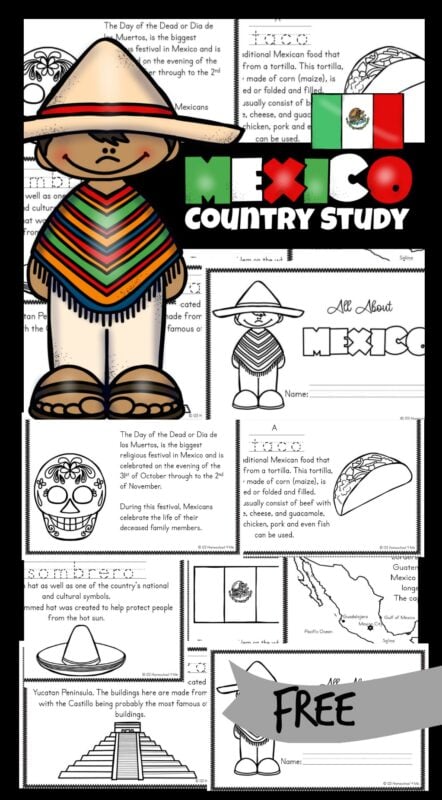 The Day of the Dead or Dia de
los Muertos, is the biggest
ous festival in Mexico and is
d on the evening of the
er through to the 2nd
Mexicans
A
taco
aditional Mexican food that
from a tortilla. This tortilla,
made of corn (maize), is
ed or folded and filled.
usually consist of be
e, cheese, and guac
chicken, pork and e
can be used.
MEXICO
COUNTRY STUDY
mbr
well as one
and cultura
hat wa
from
cated
made from
famous o
tan Pen
with the C
em on the wh
Sgline
All About
MEXICO
Name:
The Day of the Dead or Dia de
los Muertos, is the biggest
religious festival in Mexico and is
celebrated on the evening of the
31st of October through to the 2nd
of November.
During this festival, Mexicans
celebrate the life of their
deceased family members.
A
taco
aditional Mexican food that
from a tortilla. This tortilla,
made of corn (maize), is
ed or folded and filled.
usually consist of beef with
e, cheese, and guacamole,
chicken, pork and even fish
can be used.
sombrero
hat as well as one of the country's national
and cultural symbols.
mmed hat was created to help protect people
from the hot sun.
em on the wh
Guaten
Mexico
longe
The ca
Guadalajara
Mexico City
Gulf of Mexico
Pacific Ocean
Sgline
Yucatan Peninsula. The buildings here are made from
with the Castillo being probably the most famous of
buildings.
cated
made from
famous of
All About
FREE
Name: